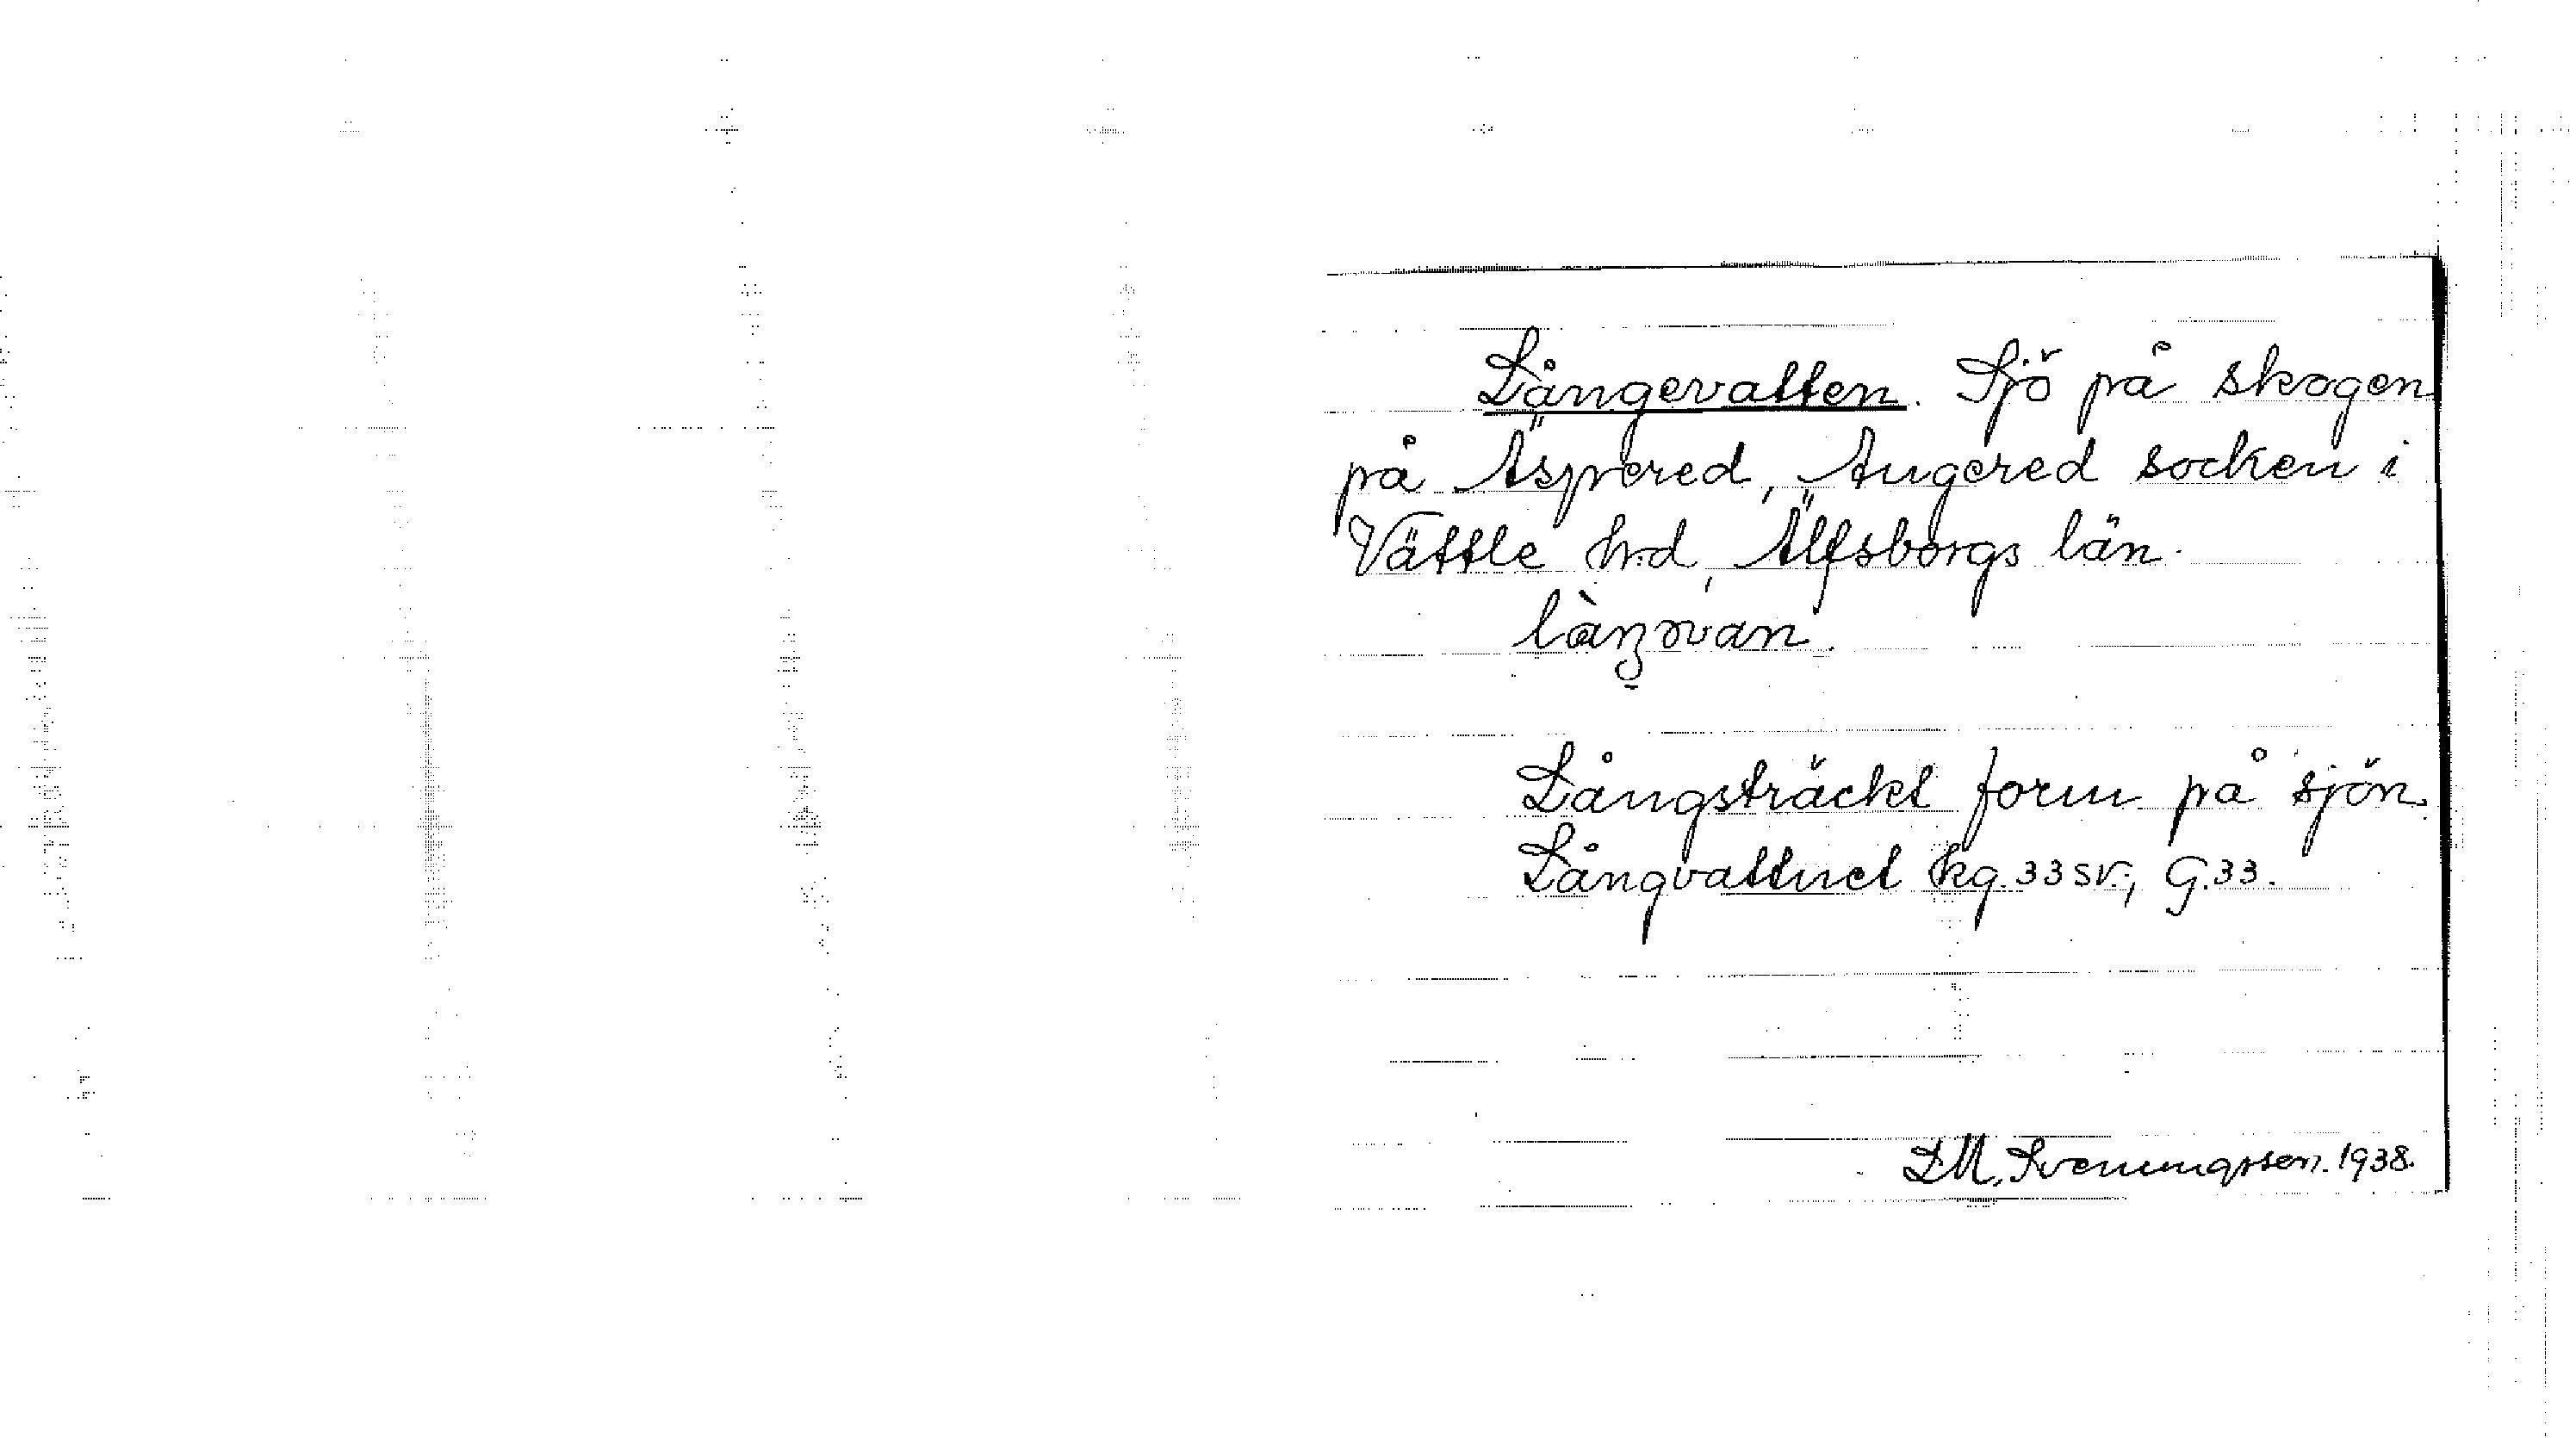 Långevatten. Sjö på skogen
på Äspered, Angered socken i
Vättle hd, Älfsborgs län.
Långsträckt form på sjön.
Långvattnet kg. 33 sv.; G. 33.
1938.